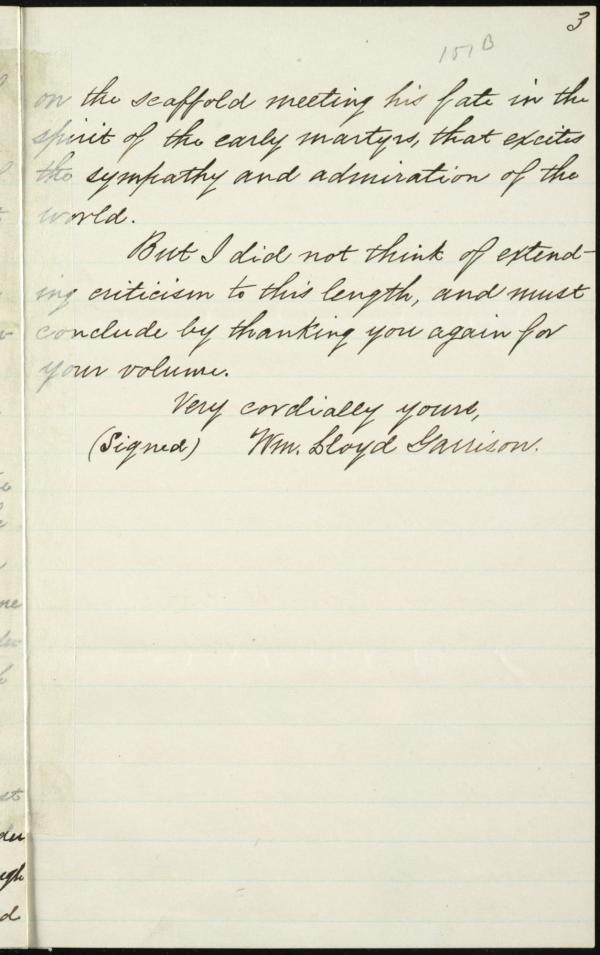 3
151 B
on the scaffold meeting his fate in the
spirit of the early martyrs, that excites
the sympathy and admiration of the
world.
But I did not think of extend-
ing criticism to this length, and must
conclude by thanking you again for
your volume.
Very cordially yours,
(Signed) Wm. Lloyd Garrison.